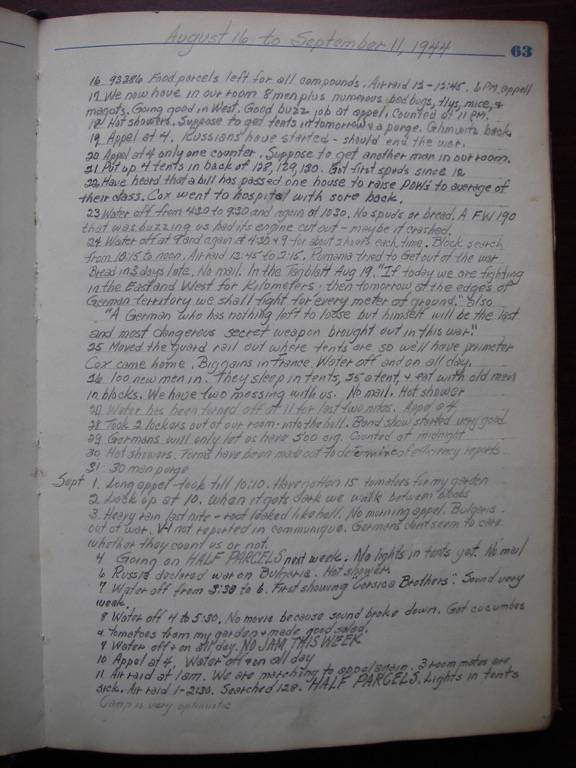 August 16 to September 11, 1944
63
16 93386 Food parcels left for all compounds. Air raid 12-12:45. 6 P.M. appell
17 We now have in our room 8 men plus numerous bed bugs, flys, mice, &
magots. Going good in West. Good buzz job at appel. Counted at 11 P.M.
18 Hot showers. Suppose to get tents in tomorrow & a purge. back
19 Appel at 4. Russians have started - should end the war.
20 Appel at 4 only one counter. Suppose to get another man in our room.
21 Put up 4 tents in back of 128, 129, 130. Got first spuds since 12
22 Have heard that a bill has passed one house to raise POW's to average of
their class. Cox went to hospital with sore back.
23 Water off from 4:30 to 9:30 and again at 10:30. No spuds or bread. A FW 190
that was buzzing us had its engine cut out - maybe it crashed.
24 Water off at 9 and again at 4:30 & 9 for about 2 hours each time. Block search
from 10:15 to noon. Air raid 12:45 to 2:15. Rumania tried to get out of the war
Bread in 3 days late. No mail. In the Tagblatt Aug 19, "If today we are fighting
in the East and West for Kilometers, then tomorrow at the edges of
German territory we shall fight for every meter of ground." also
"A German who has nothing left to loose but himself will be the last
and most dangerous secret weapon brought out in this war."
25 Moved the guard rail out where tents are so we'll have perimeter
Cox came home. Big gains in France. Water off and on all day.
26 100 new men in. They sleep in tents, 25 a tent, & eat with old men
in blocks. We have two messing with us. No mail. Hot shower
Water has been turned off at 11 for last two nites. Appel at 4
28 Took 2 lockers out of our room - into the hall. Band show started very good
29 Germans will only let us have 500 cig. Counted at midnight
30 Hot showers. Forms have been made out to determine efficiency reports
31 30 man purge
Sept 1. Long appel - took till 10:10. Have gotten 15 tomatoes from my garden
2 Lock up at 10. When it gets dark we walk between blocks
3 Heavy rain last nite - roof leaked like hell. No morning appel. Bulgaria
out of war. V1 not reported in communique. Germans dont seem to care
whether they count us or not.
4 Going on HALF PARCELS next week. No lights in tents yet. No mail
6 Russia declared war on Bulgaria. Hot shower
7 Water off from 3:30 to 6. First showing "Corsica Brothers". Sound very
weak.
8 Water off 4 to 5:30. No movie because sound broke down. Got cucumbes
& tomatoes from my garden & made good salad.
9 Water off & on all day. NO JAM THIS WEEK
10 Appel at 4. Water off & on all day
11 Air raid at 1 am. We are marching to appel again. 3 room mates are
sick. Air raid 1-2:30. Searched 128. HALF PARCELS. Lights in tents
Camp is very optimistic